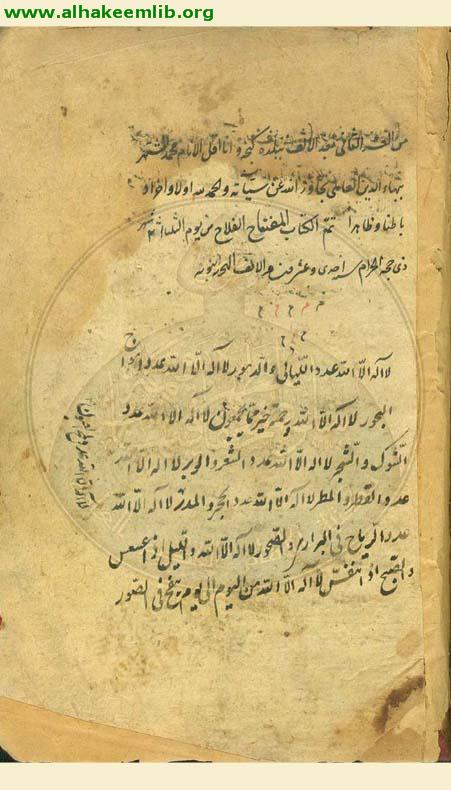 www.alhakeemlib.org
من العشر الثاني بعد الالف ببلدة كنجه وانا اقل الانام محمد المشتهر
بهاء الدين العاملي تجاوز الله عن سيئاته والحمد لله اولا واخرا و
باطنا وظاهرا تم الكتاب المفتاح الفلاح من يوم الثلثا شهر
ذي حجه الحرام سنه احدى وعشرين والالف الهجرة النبويه
لا اله الا الله عدد الليالي والدهور لا اله الا الله عدد امواج
البحور لا اله الا الله ورحمته خير مما يجمعون لا اله الا الله عدد
الشوك والشجر لا اله الا الله عدد الشعر والوبر لا اله الا الله
عدد القطر والمطر لا اله الا الله عدد الحجر والمدر لا اله الا الله
عدد الرياح في البراري والصخور لا اله الا الله والليل اذا عسعس
والصبح اذا تنفس لا اله الا الله من اليوم الى يوم ينفخ في الصور
لا اله الا الله عدد لمح العيون